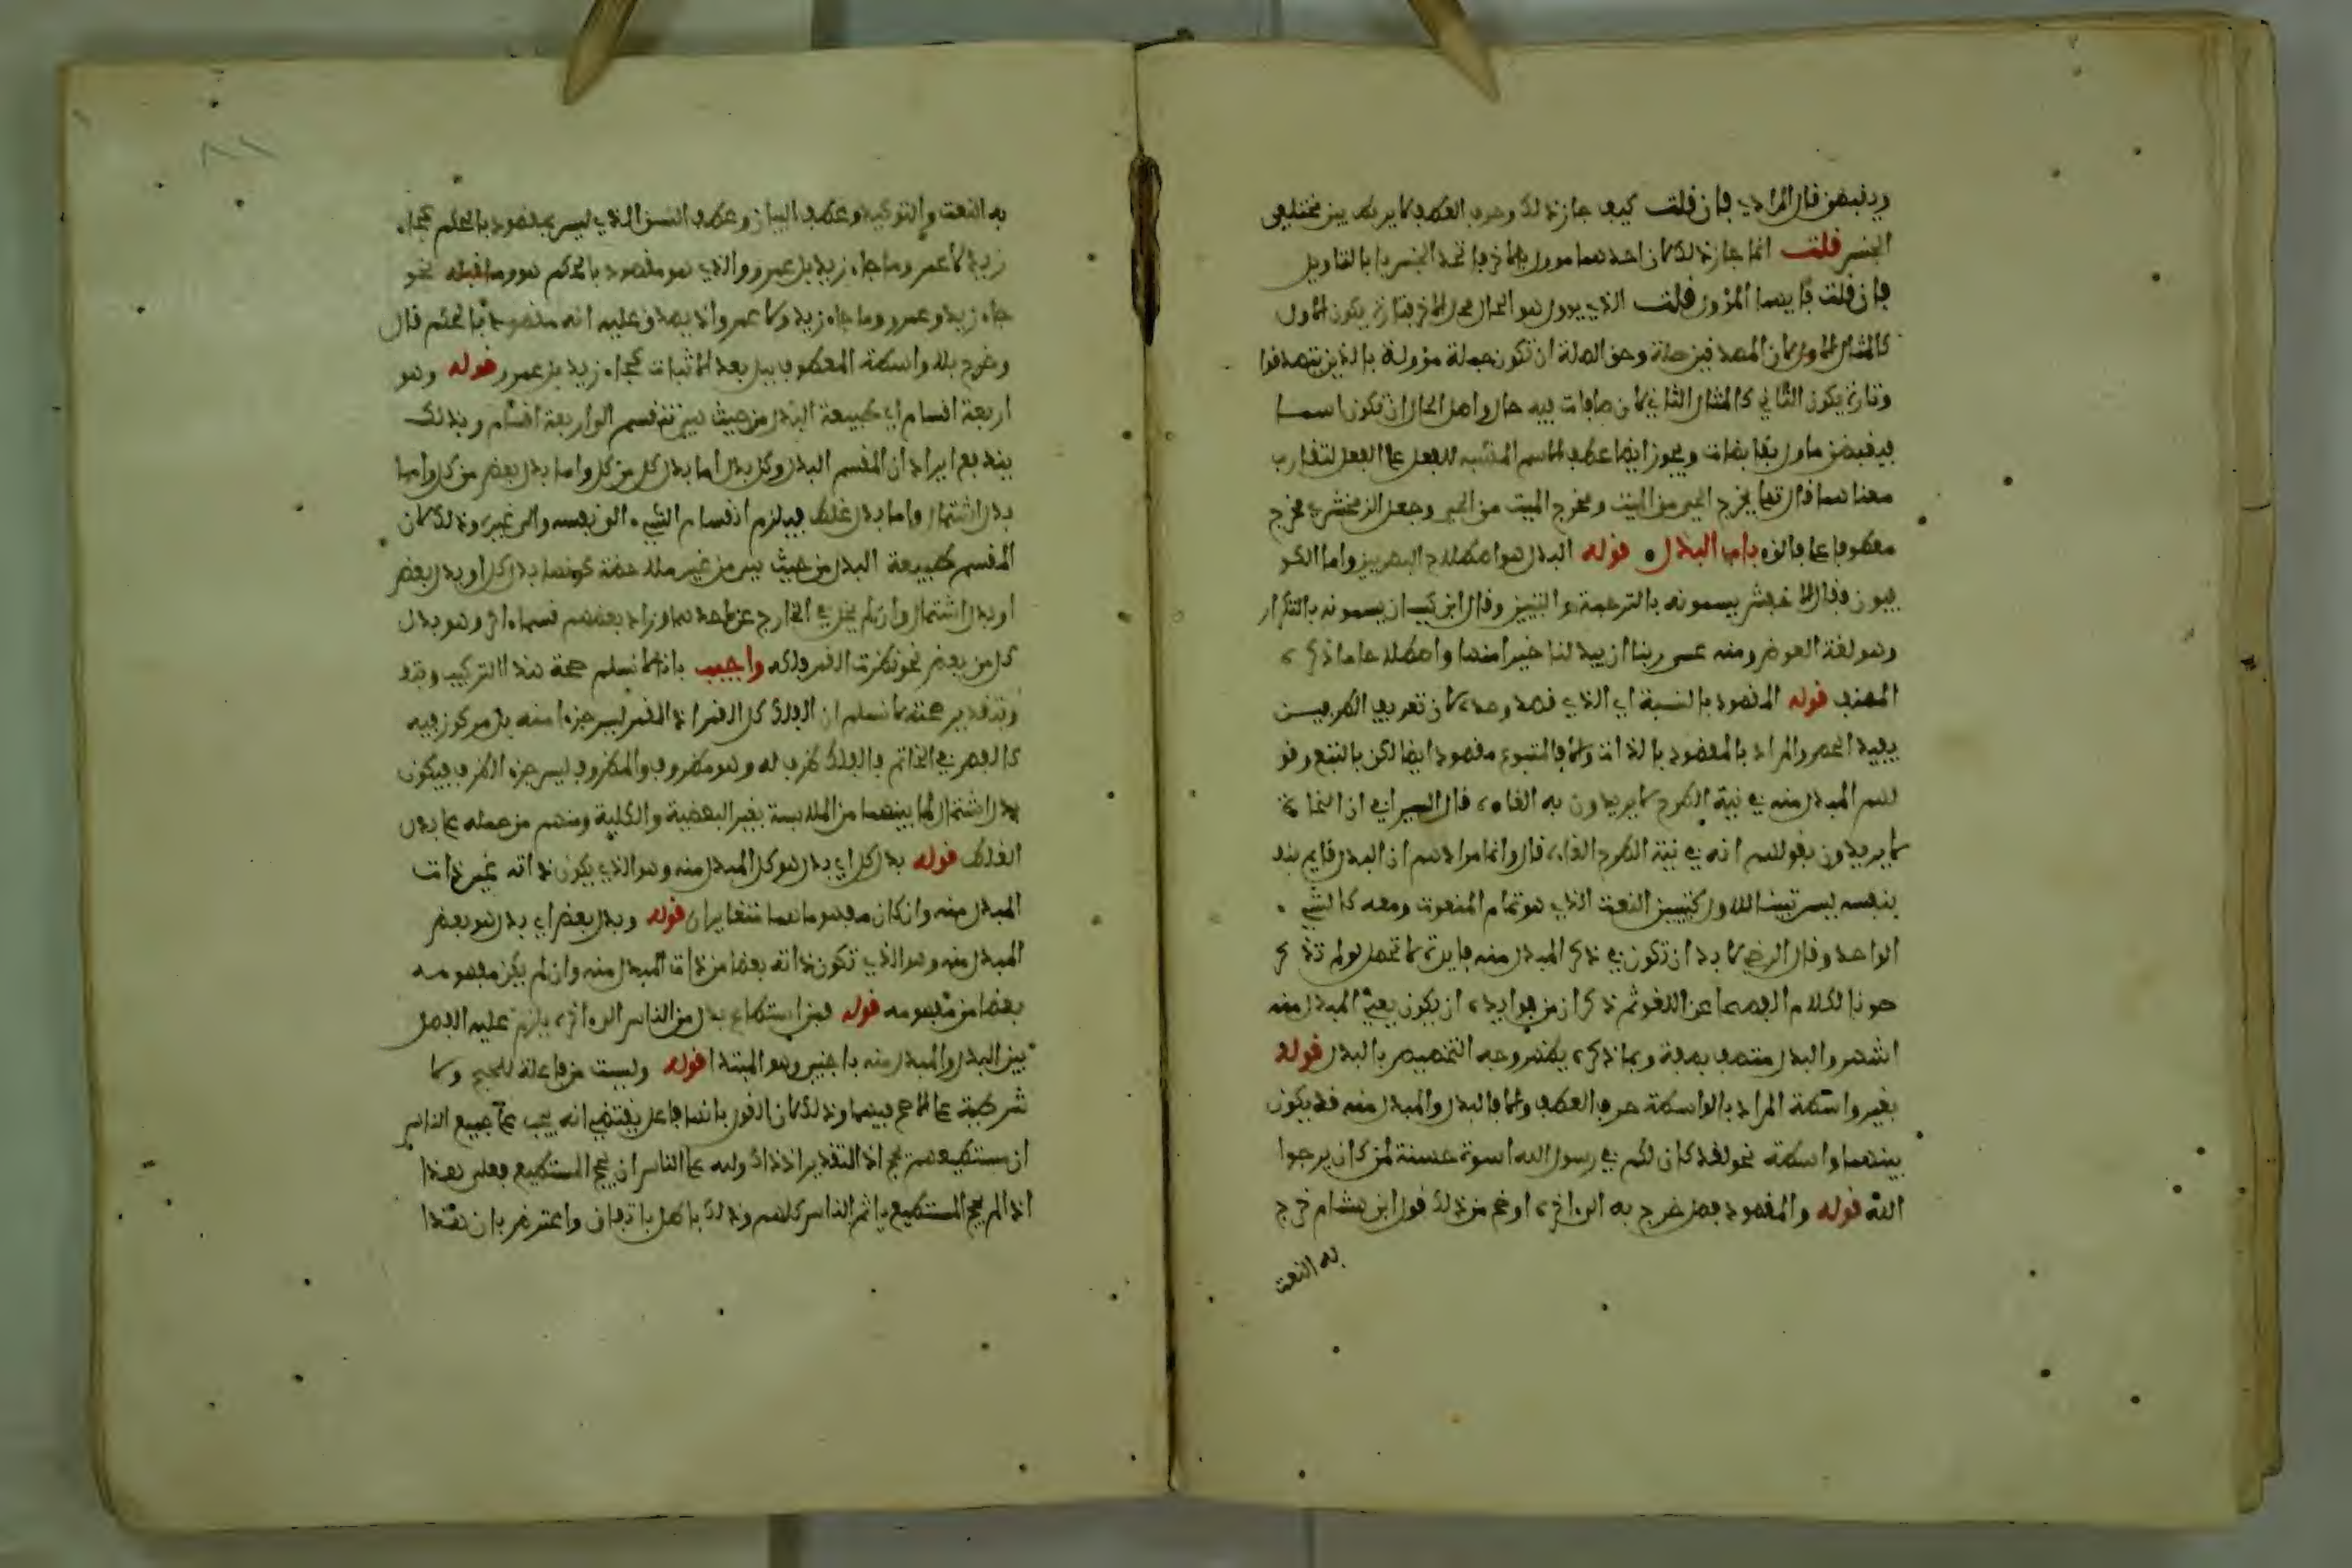 ويقبضن قال المرادي فإن قلت كيف جاز ذلك وحرف العطف لا يربط بين مختلفي
الجنس قلت انما جاز ذلك لان احدهما مؤول بالاخر فاتحد الجنس بالتاويل
فإن قلت فايهما المؤول قلت الذي يؤول هو الحال محل الاخر فتارة يكون الاول
كالمثال الاول لان المصدقين صلة وحق الصلة ان تكون جملة مؤولة بالذين تصدقوا
وتارة يكون الثاني كالمثال الثاني لان صافات فيه حال واصل الحال ان تكون اسما
فيقبضن ماول بقابضات ويجوز ايضا عطف الاسم المشبه للفعل على الفعل لتقارب
معناهما قال تعالى يخرج الحي من الميت ومخرج الميت من الحي وجعل الزمخشري مخرج
معطوفا على فالق باب البدل قوله البدل هو اصطلاح البصريين واما الكو
فيون فقال الاخفش يسمونه بالترجمة والتبيين وقال ابن كيسان يسمونه بالتكرار
وهو لغة العوض ومنه عسى ربنا ان يبدلنا خيرا منها واصطلاحا ما ذكره
المصنف قوله المقصود بالنسبة اي الذي قصد وحده لان تعريف الطرفين
يفيد الحصر والمراد بالمقصود بالذات والا فالمتبوع مقصود ايضا لكن بالتبع وقو
لهم المبدل منه في نية الطرح لا يريدون به الغاءه قال السيرافي ان النحاة
لا يريدون بقولهم انه في نية الطرح الغاءه قال وانما مرادهم ان البدل قايم بنف
بنفسه ليس تبيينا للاول كتبيين النعت الذي هو تمام المنعوت ومعه كالشيء
الواحد وقال الرضي لا بد ان تكون في ذكر المبدل منه فايدة لا تحصل لو لم تذكر
صونا لكلام الفصحا عن اللغو ثم ذكر ان من فوايده ان يكون يعني المبدل منه
اشهر والبدل متصف بصفة وبما ذكره يظهر وجه التخصيص بالبدل قوله
بغير واسطة المراد بالواسطة حرف العطف والا فالبدل والمبدل منه قد يكون
بينهما واسطة نحو لقد كان لكم في رسول الله اسوة حسنة لمن كان يرجوا
الله قوله والمقصود فصل خرج به الى اخره اوضح من ذلك قول ابن هشام خرج
به النعت
به النعت والتوكيد وعطف البيان وعطف النسق الذي ليس بمقصود بالحكم كجاء
زيد لا عمر وما جاء زيد بل عمرو والذي هو مقصود بالحكم هو وما قبله نحو
جاء زيد وعمرو وما جاء زيد ولا عمرو اذ يصدق عليه انه مقصود بالحكم قال
وخرج بلا واسطة المعطوف ببل بعد الاثبات كجاء زيد بل عمرو قوله وهو
اربعة اقسام اي طبيعة البدل من حيث هي تنقسم الى اربعة اقسام وبذلك
يندفع ايراد ان المقسم البدل وكل بدل اما بدل كل من كل واما بدل بعض من كل واما
بدل اشتمال واما بدل غلط فيلزم انقسام الشيء الى نفسه والى غيره وذلك لان
المقسم طبيعة البدل من حيث هي من غير ملاحظة كونها بدل كل او بدل بعض
او بدل اشتمال وان لم يخل في الخارج عن احدهما وزاد بعضهم قسما اخر وهو بدل
كل من بعض نحو نظرت القمر فلكه واجيب بانا لا نسلم صحة هذا التركيب وبتقد
وبتقدير صحته لا نسلم ان الفلك كل القمر اذ القمر ليس جزءا منه بل مركوز فيه
كالفص في الخاتم فالفلك ظرف له وهو مظروف والمظروف ليس جزء الظرف فيكون
بدل اشتمال لما بينهما من الملابسة بغير البعضية والكلية ومنهم من حمله على بدل
الغلط قوله بدل كل اي بدل هو كل المبدل منه وهو الذي يكون ذاته عين ذات
المبدل منه وان كان مفهوماهما متغايران قوله وبدل بعض اي بدل هو بعض
المبدل منه وهو الذي تكون ذاته بعضا من ذات المبدل منه وان لم يكن مفهومه
بعضا من مفهومه قوله فمن استطاع بدل من الناس الى اخره يلزم عليه الفصل
بين البدل والمبدل منه باجنبي وهو المبتدا قوله وليست من فاعلة للحج ولا
شرطية على الاصح فيهما وذلك لان القول بانها فاعل يقتضي انه يجب على جميع الناس
ان مستطيعهم يحج اذ التقدير اذ ذاك ولله على الناس ان يحج المستطيع فعلى هذا
اذا لم يحج المستطيع ياثم الناس كلهم وذلك باطل باتفاق واعترض بان هذا